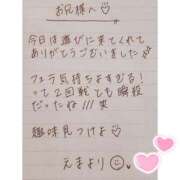 お兄様へ♡
今日は遊びに来てくれて
ありがとうございました
フェラ気持ちよすぎる！
って2回戦とも瞬殺
だったね///笑
趣味見つけよ♡
えまより